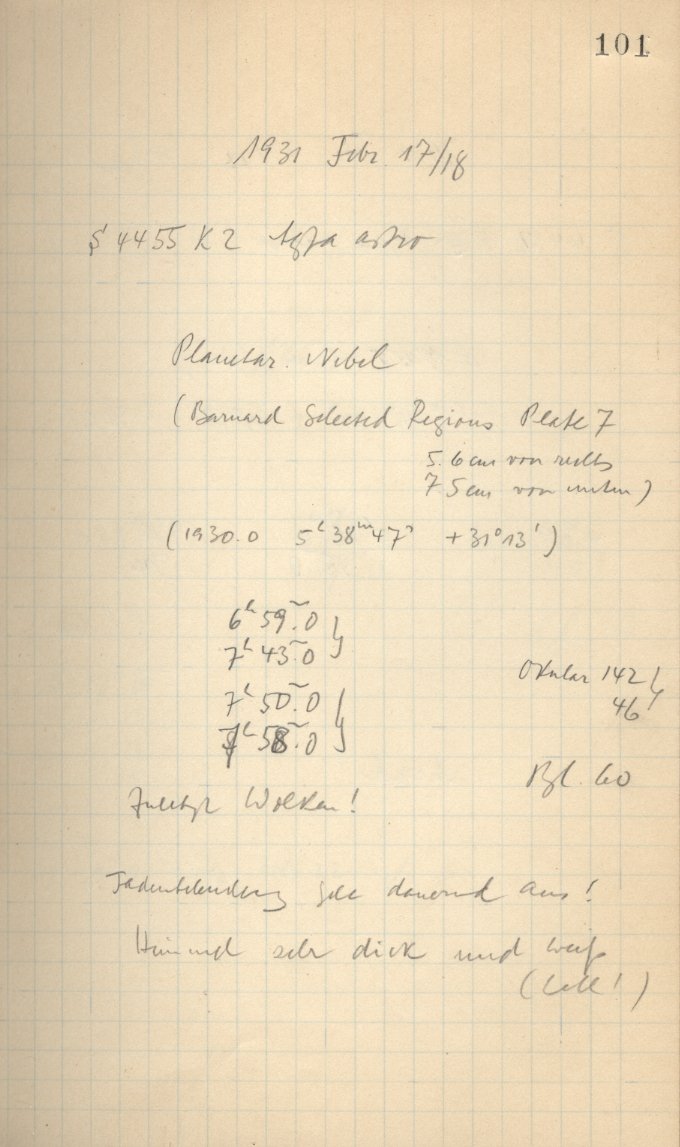 101
1931 Febr. 17/18
S 4455 K 2 Agfa astro
Planetar. Nebel
(Barnard Selected Regions Plate 7
5.6 cm von rechts
7.5 cm von unten)
(1930.0 5h 38m 47s +31° 13')
6h 59m.0
7h 43m.0
7h 50m.0
7h 58m.0
Okular 142
46
Bl. 60
Zuletzt Wolken!
Fadenbeleuchtung geht dauernd aus!
Himmel sehr dick und weiß
(hell!)